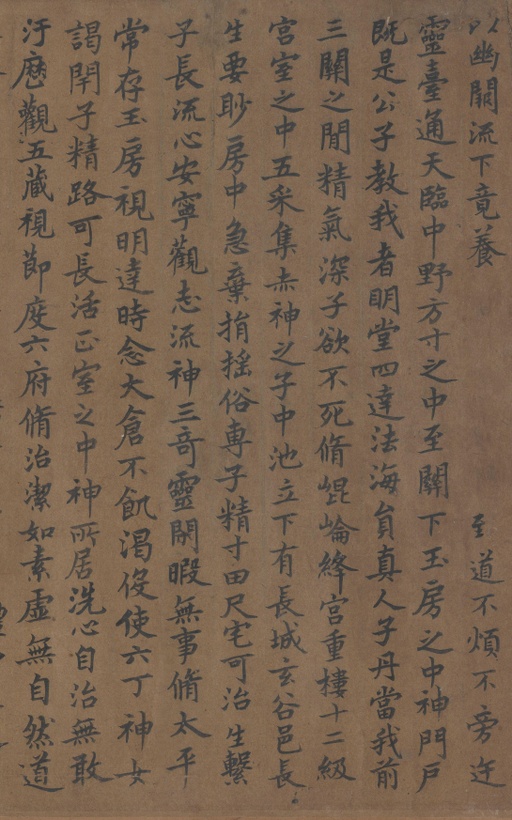 以幽闕流下竟養 至道不煩不旁迕
靈臺通天臨中野方寸之中至關下玉房之中神門戶
既是公子教我者明堂四達法海員真人子丹當我前
三關之間精氣深子欲不死脩崐崘絳宮重樓十二級
宮室之中五采集赤神之子中池立下有長城玄谷邑長
生要眇房中急棄捐搖俗専子精寸田尺宅可治生繫
子長流心安寧觀志流神三奇靈閑暇無事脩太平
常存玉房視明達時念大倉不飢渴役使六丁神女
謁閈子精路可長活正室之中神所居洗心自治無敢
汙歷觀五藏視節度六府脩治潔如素虛無自然道